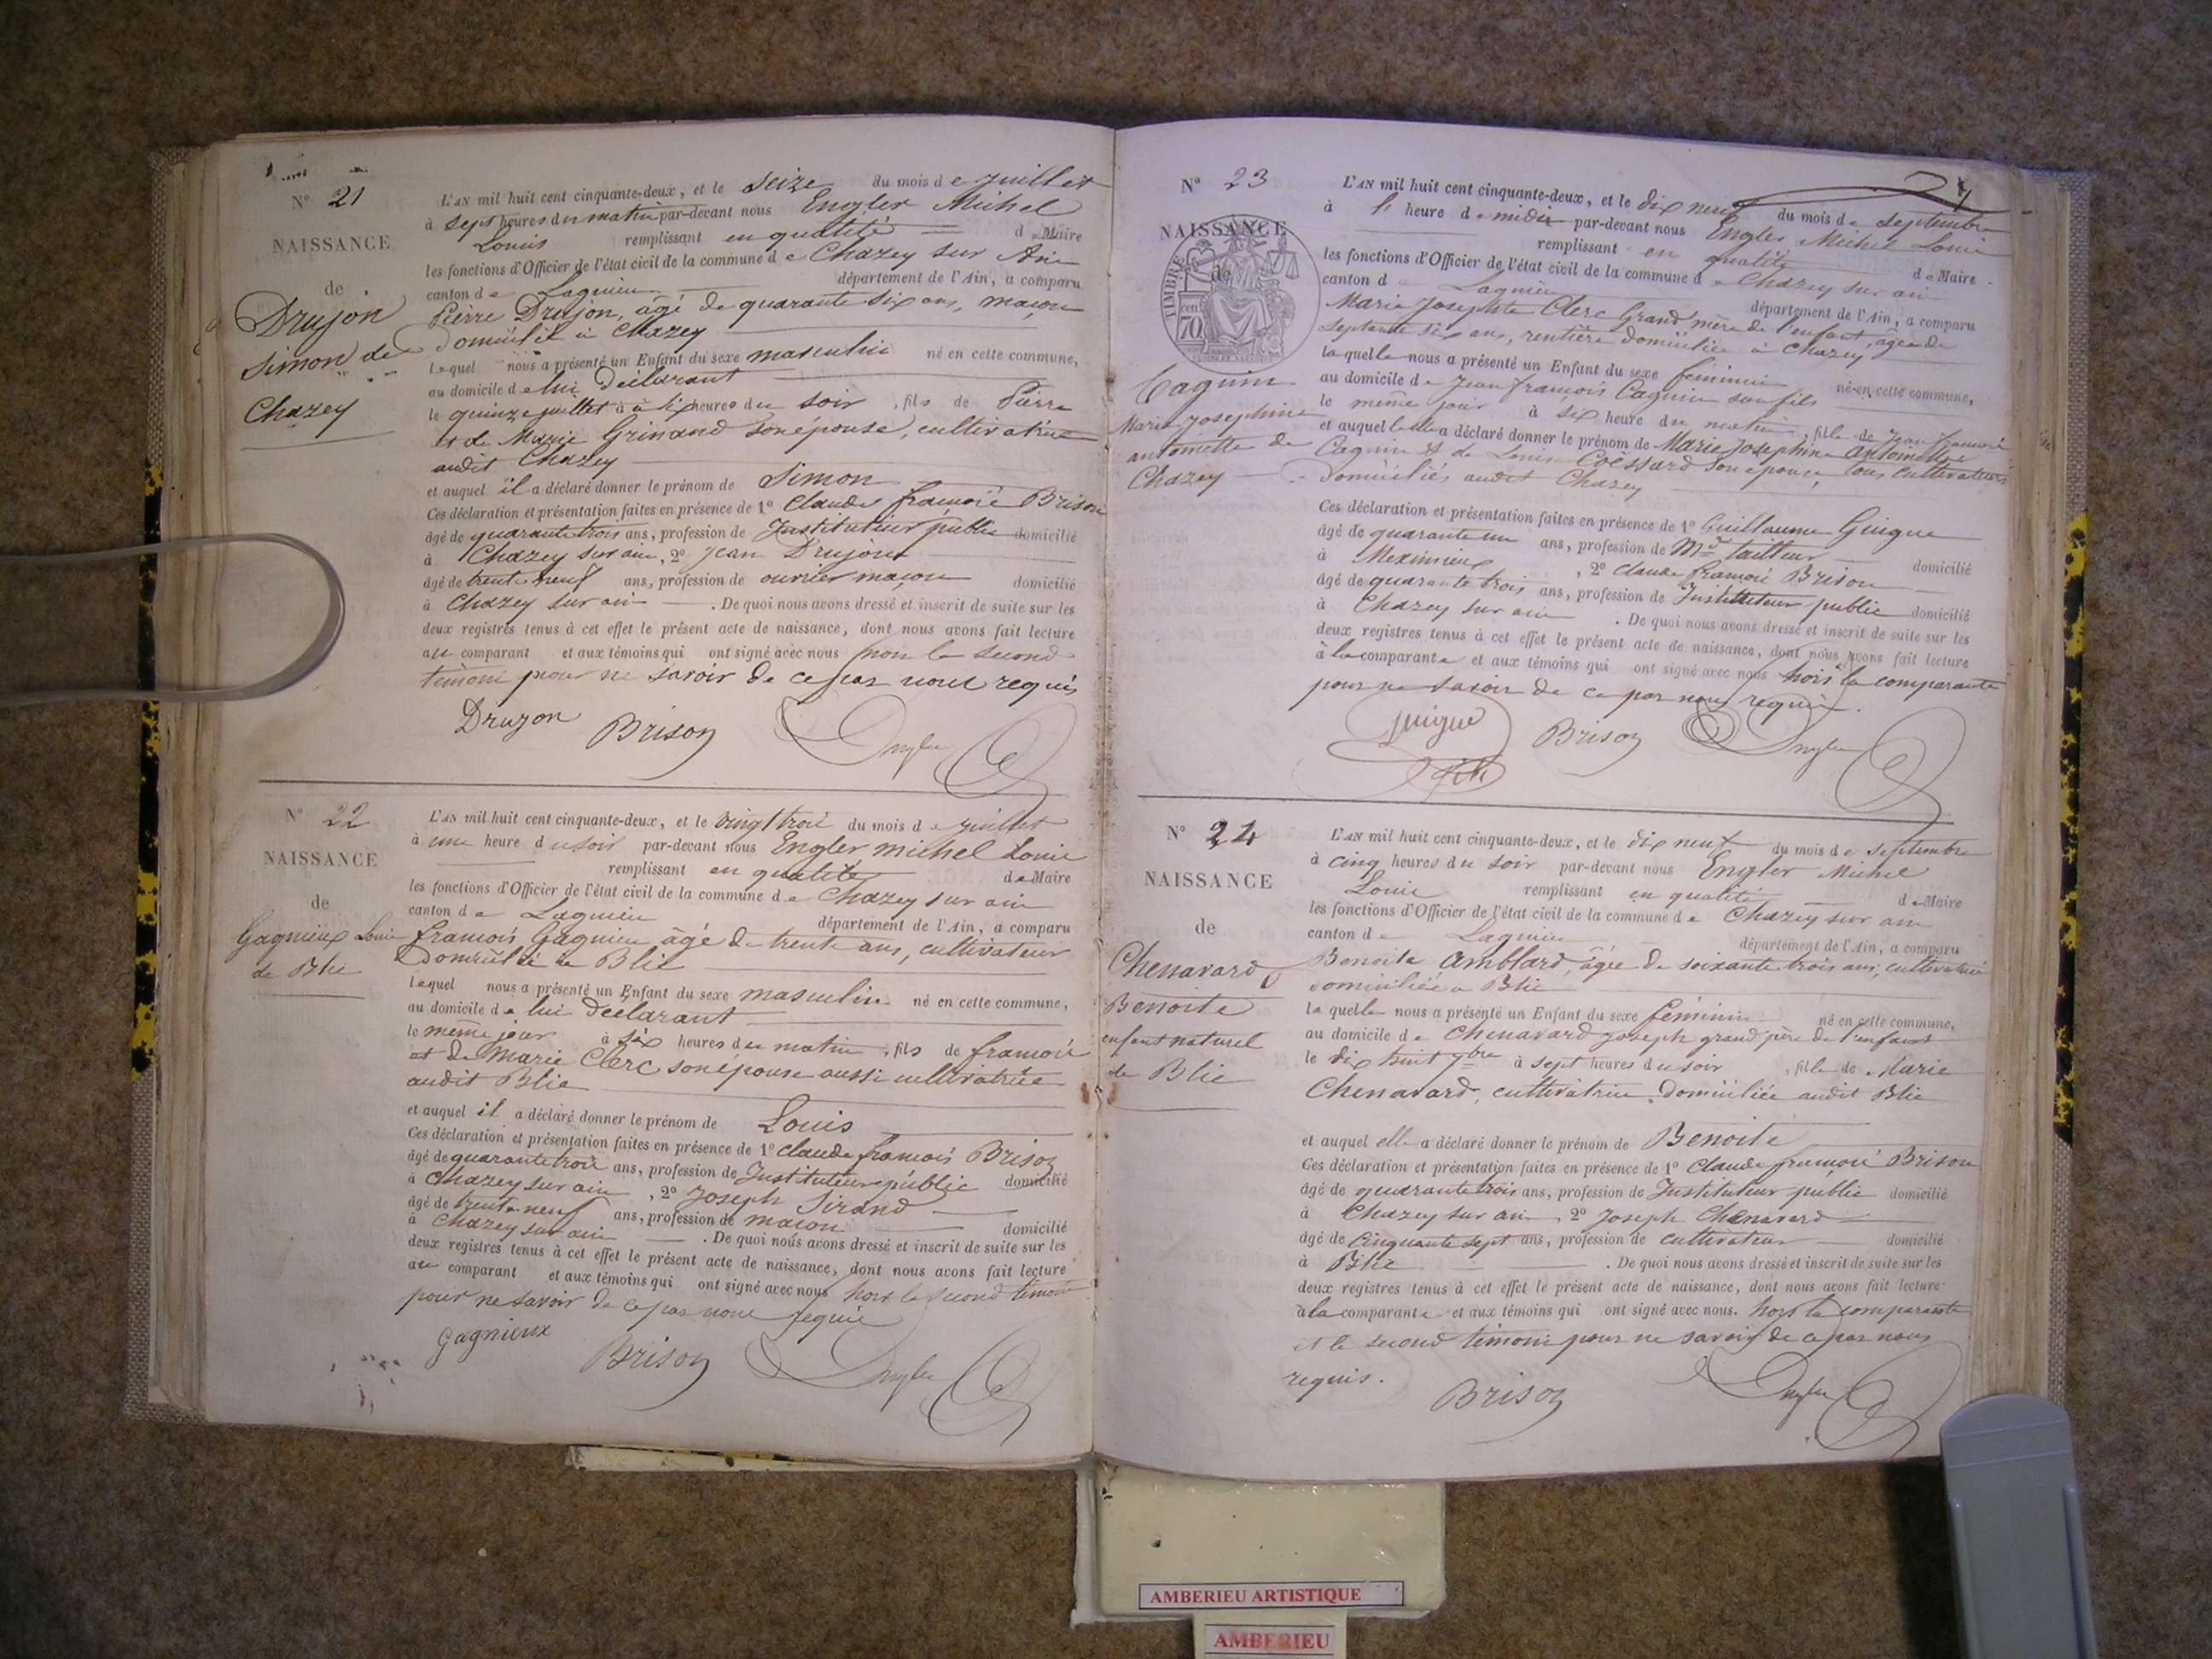 N° 21
NAISSANCE
de
Drujon
Simon de
Chazey
L'AN mil huit cent cinquante-deux, et le seize du mois de juillet
à sept heures du matin par-devant nous Engler Michel
Louis remplissant en qualité de Maire
les fonctions d'Officier de l'état civil de la commune de Chazey sur Ain
canton de Lagnieu département de l'Ain, a comparu
Pierre Drujon, âgé de quarante six ans, maçon
domicilié à Chazey
lequel nous a présenté un Enfant du sexe masculin né en cette commune,
au domicile de lui déclarant
le quinze juillet à six heures du soir, fils de Pierre
et de Marie Grinand son épouse, cultivatrice
audit Chazey
et auquel il a déclaré donner le prénom de Simon
Ces déclaration et présentation faites en présence de 1° Claude françois Brison
âgé de quarante trois ans, profession de Instituteur public domicilié
à Chazey sur ain, 2° Jean Drujon
âgé de trente neuf ans, profession de ouvrier maçon domicilié
à Chazey sur ain. De quoi nous avons dressé et inscrit de suite sur les
deux registres tenus à cet effet le présent acte de naissance, dont nous avons fait lecture
au comparant et aux témoins qui ont signé avec nous non le second
témoin pour ne savoir de ce par nous requis
Drujon Brison Engler
N° 22
NAISSANCE
de
Gagnieux Louis
de Blie
L'AN mil huit cent cinquante-deux, et le vingt trois du mois de juillet
à une heure du soir par-devant nous Engler michel Louis
remplissant en qualité de Maire
les fonctions d'Officier de l'état civil de la commune de Chazey sur ain
canton de Lagnieu département de l'Ain, a comparu
françois Gagnieu âgé de trente ans, cultivateur
domicilié à Blie
lequel nous a présenté un Enfant du sexe masculin né en cette commune,
au domicile de lui déclarant
le même jour à six heures du matin, fils de françois
et de Marie Clerc son épouse aussi cultivatrice
audit Blie
et auquel il a déclaré donner le prénom de Louis
Ces déclaration et présentation faites en présence de 1° Claude françois Brison
âgé de quarante trois ans, profession de Instituteur public domicilié
à Chazey sur ain, 2° Joseph Sirand
âgé de trente neuf ans, profession de maçon domicilié
à Chazey sur ain. De quoi nous avons dressé et inscrit de suite sur les
deux registres tenus à cet effet le présent acte de naissance, dont nous avons fait lecture
au comparant et aux témoins qui ont signé avec nous hors le second témoin
pour ne savoir de ce par nous requis
Gagnieux Brison Engler
N° 23
NAISSANCE
de
TIMBRE
70
Cagnin
Marie Josephine
antoinette de
Chazey
L'AN mil huit cent cinquante-deux, et le dix neuf du mois de septembre
à l' heure de midi par-devant nous Engler Michel Louis
remplissant en qualité de Maire
les fonctions d'Officier de l'état civil de la commune de Chazey sur ain
canton de Lagnieu département de l'Ain, a comparu
Marie Josephte Clerc Grand mère de l'enfant, âgée de
septante six ans, rentière domiciliée à Chazey
laquelle nous a présenté un Enfant du sexe féminin né en cette commune,
au domicile de Jean françois Cagnin son fils
le même jour à six heure du matin, fille de Jean françois
et auquel elle a déclaré donner le prénom de Marie Josephine antoinette
Cagnin et de Louise Coëssard son épouse, tous cultivateurs
domiciliés audit Chazey
Ces déclaration et présentation faites en présence de 1° Guillaume Guigue
âgé de quarante un ans, profession de Md tailleur domicilié
à Meximieux, 2° Claude françois Brison
âgé de quarante trois ans, profession de Instituteur public domicilié
à Chazey sur ain. De quoi nous avons dressé et inscrit de suite sur les
deux registres tenus à cet effet le présent acte de naissance, dont nous avons fait lecture
à la comparante et aux témoins qui ont signé avec nous hors la comparante
pour ne savoir de ce par nous requis.
Guigue Brison Engler
N° 24
NAISSANCE
de
Chenavard
Benoite
enfant naturel
de Blie
L'AN mil huit cent cinquante-deux, et le dix neuf du mois de septembre
à cinq heures du soir par-devant nous Engler Michel
Louis remplissant en qualité de Maire
les fonctions d'Officier de l'état civil de la commune de Chazey sur ain
canton de Lagnieu département de l'Ain, a comparu
Benoite Amblard, âgée de soixante trois ans, cultivatrice
domiciliée à Blie
laquelle nous a présenté un Enfant du sexe féminin né en cette commune,
au domicile de Chenavard Joseph grand père de l'enfant
le dix huit 7bre à sept heures du soir, fille de Marie
Chenavard, cultivatrice domiciliée audit Blie
et auquel elle a déclaré donner le prénom de Benoite
Ces déclaration et présentation faites en présence de 1° Claude françois Brison
âgé de quarante trois ans, profession de Instituteur public domicilié
à Chazey sur ain, 2° Joseph Chenavard
âgé de Cinquante sept ans, profession de cultivateur domicilié
à Blie. De quoi nous avons dressé et inscrit de suite sur les
deux registres tenus à cet effet le présent acte de naissance, dont nous avons fait lecture
à la comparante et aux témoins qui ont signé avec nous. hors la comparante
et le second témoin pour ne savoir de ce par nous
requis.
Brison Engler
AMBERIEU ARTISTIQUE
AMBERIEU